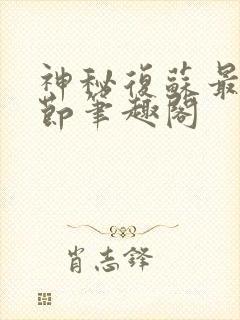 神秘復蘇最
節筆趣閣
肖志鋒